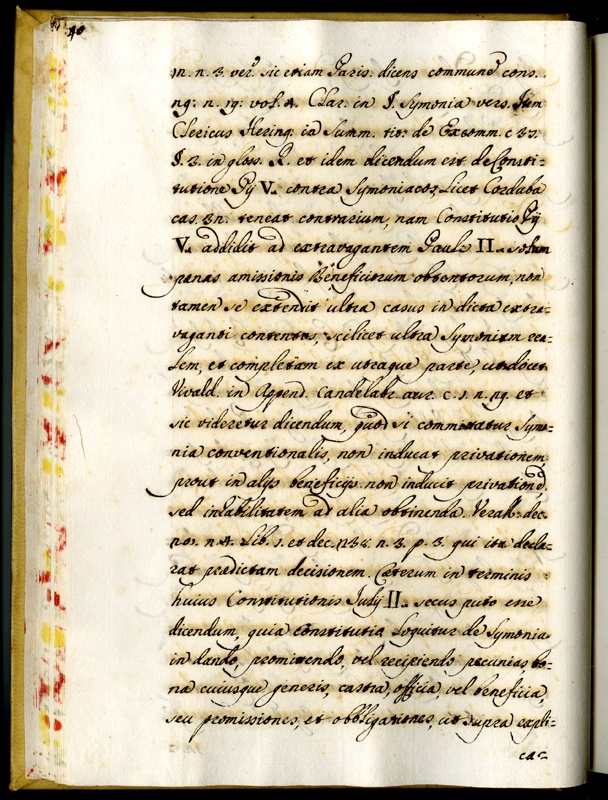 40
m. n. 3. ver. sic etiam Paris. dicens commune cons.
ng: n. 19: vol. 4. Clar. in §. Symonia vers. Item
Clericus Hering. in Summ. tit: de Excomm. c 37.
§. 3. in gloss. R. et idem dicendum est de Consti-
tutione Pij V. contra Symoniacos, Licet Corduba
cas. 3n. teneat contrarium, nam Constitutio Pij
V. addidit ad extravagantem Pauli II. solum
pænas amissionis Beneficiorum obtentorum, non
tamen se extendit ultra casus in dicta extra-
vaganti contentos, scilicet ultra Symoniam rea-
lem, et completam ex utraque parte, ut docet
Vivald. in Append. Candelabr. aur. c. 1 n. 19. et
sic videretur dicendum, quod si committatur Symo-
nia conventionalis, non inducat privationem,
prout in alijs beneficijs non inducit privationē,
sed inhabilitatem ad alia obtinenda. Verall. dec.
no1. n. 4. lib. 1. et dec. 1138. n. 3. p. 3. qui ita decla-
rat prædictam decisionem. Cæterum in terminis
huius Constitutionis Julij II. secus puto esse
dicendum, quia constitutio loquitur de Symonia
in dando, promittendo, vel recipiendo pecunias, bo-
na cuiusque generis, castra, officia, vel beneficia,
seu promissiones, et obbligationes, ut supra expli-
cac